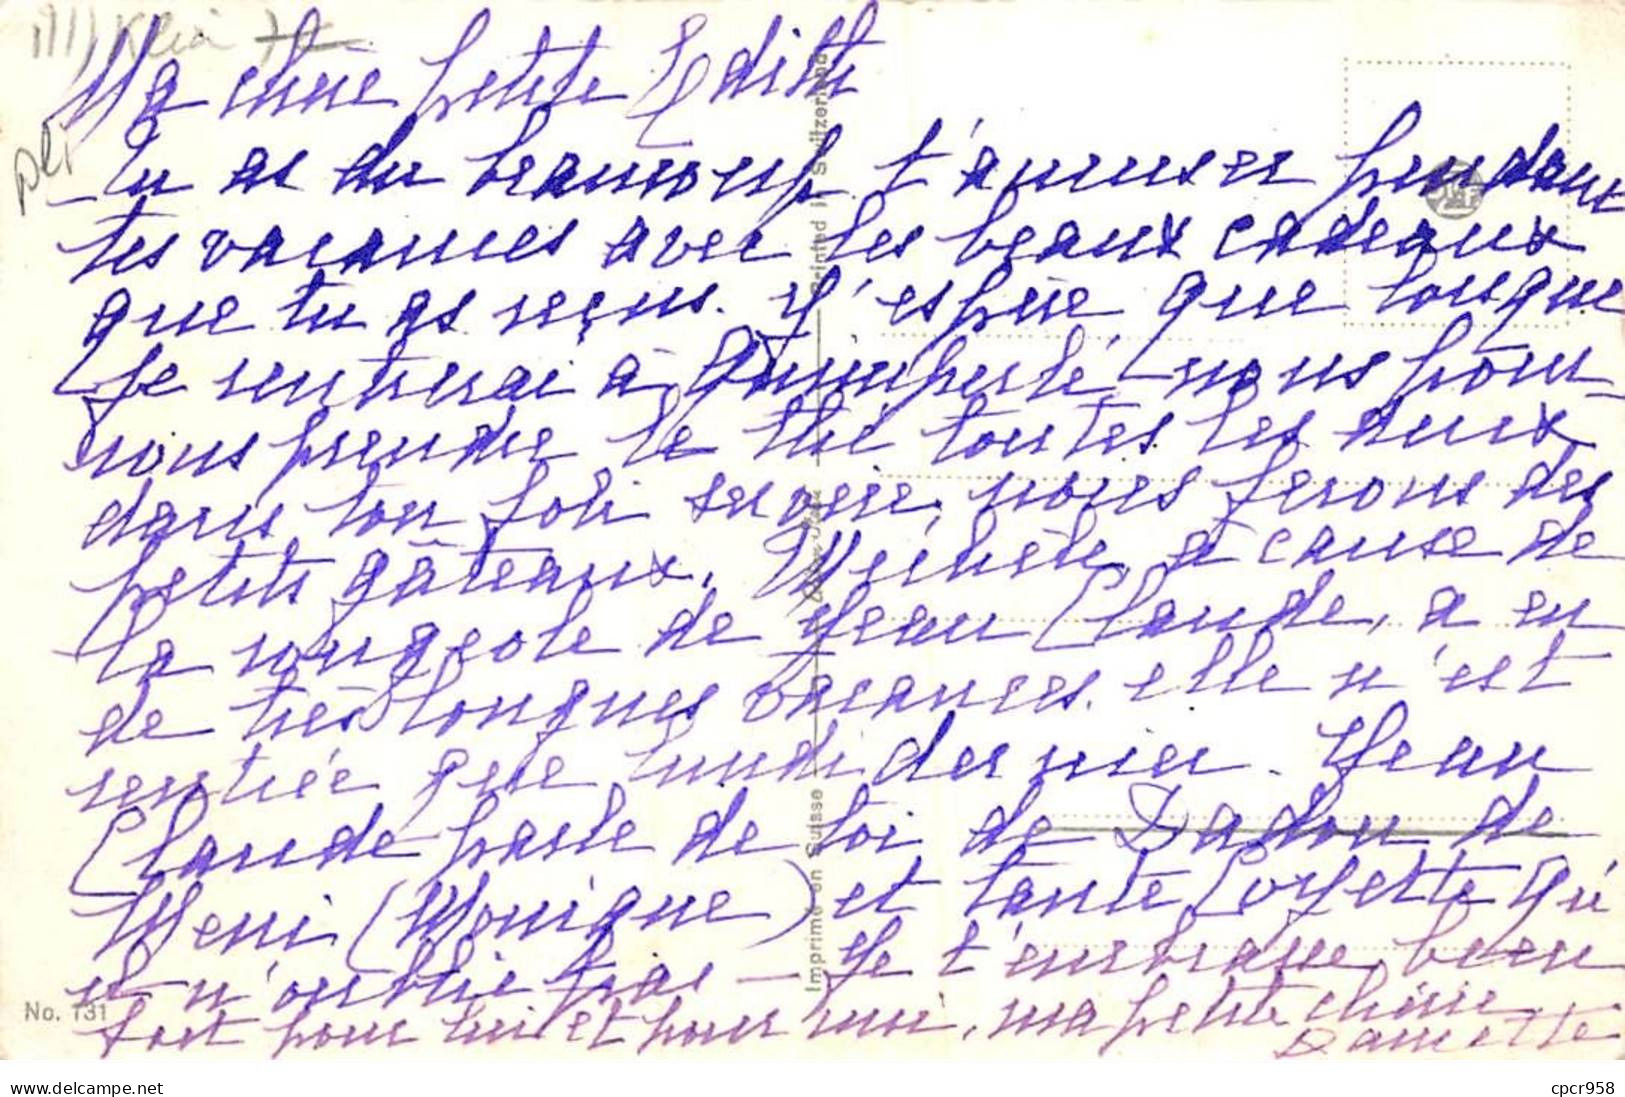 Ma chère petite Edith
Tu as du beaucoup t'amuser pendant
tes vacances avec les beaux cadeaux
que tu as reçus. J'espère que lorsque
Je rentrerai à Quimperlé, nous pour-
rons prendre le thé toutes les deux
dans ton joli service, nous ferons des
petits gâteaux. Michèle, à cause de
la rougeole de Jean Claude, a eu
de très longues vacances. elle n'est
rentrée que lundi dernier. Jean
Claude parle de toi de Dadou de
Meni (Monique) et tante Poyette qu'
il n'oublie pas - Je t'embrasse bien
fort pour lui et pour moi, ma petite chérie
Imprimé en Suisse
Printed in Switzerland
No. 731
delcampe.net
cpcr958